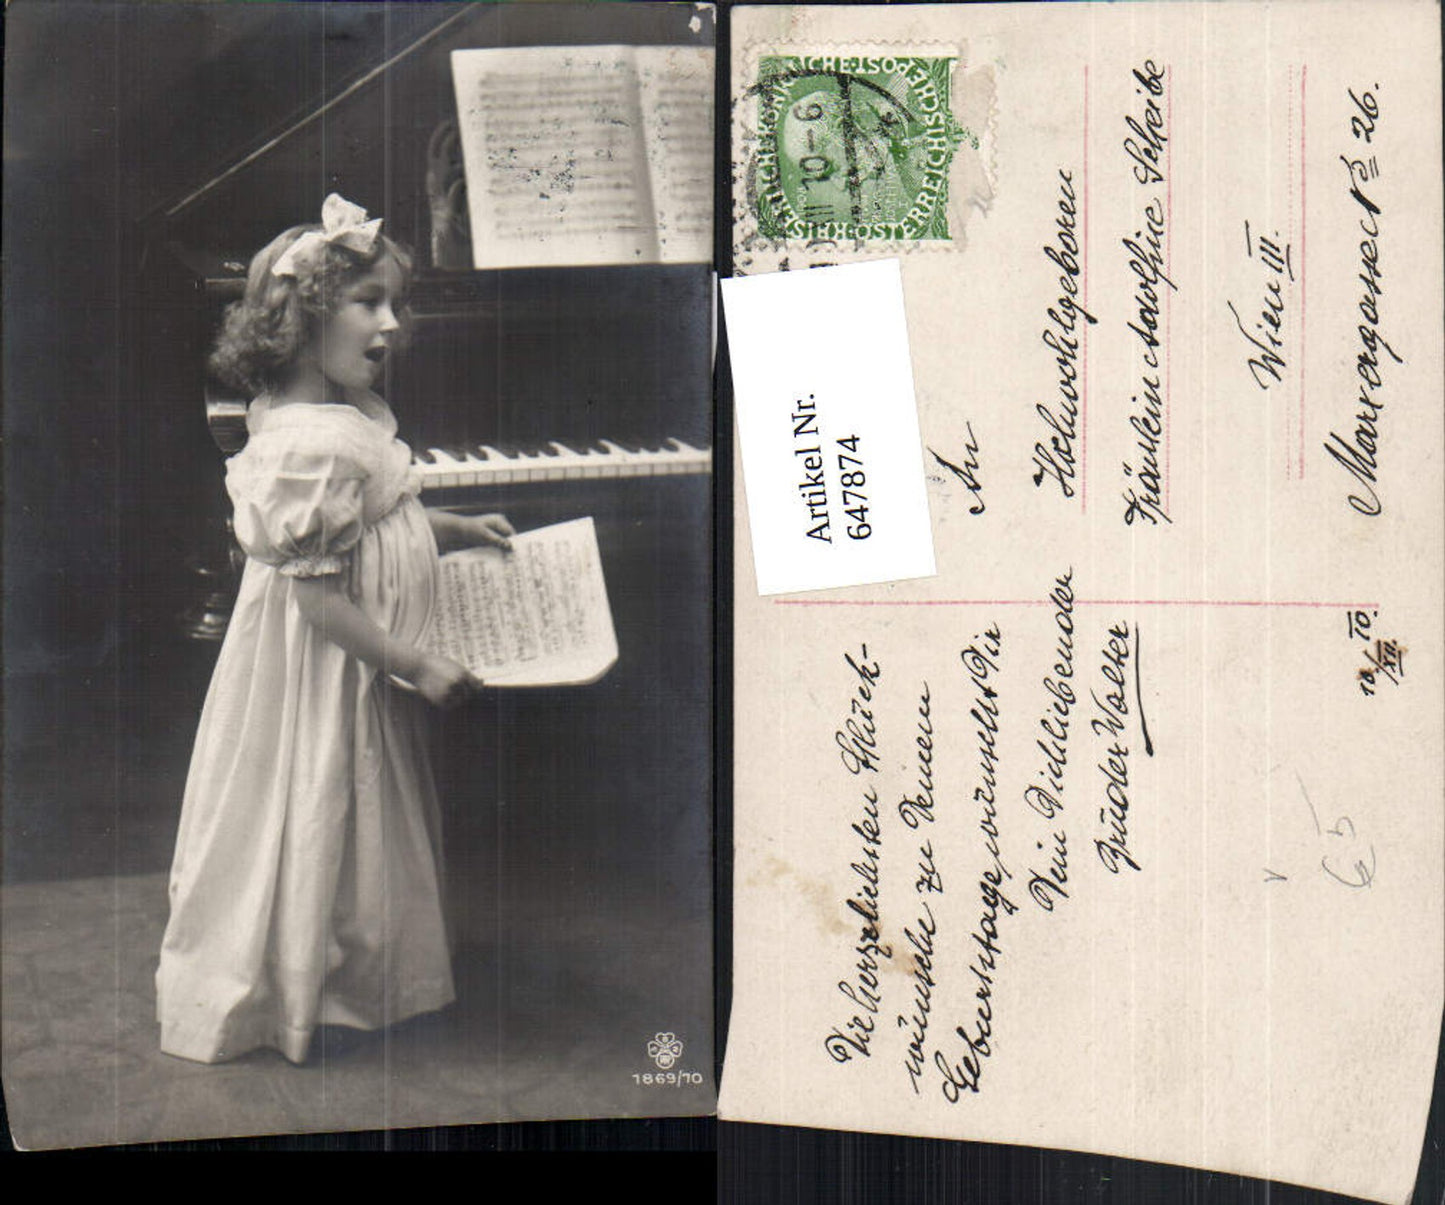 1869/70
KAISERL.KÖNIGL. ÖSTERREICHISCHE POST
10-6
Artikel Nr.
647874
An
Hochwohlgeboren
Fräulein Adolfine Scheibe
Wien III.
Marxergasse No 26.
10/XII. 10.
Die herzlichsten Glück-
wünsche zu Deinem
Geburtstage, wünscht Dir
Dein Dichliebender
Bruder Walter
65